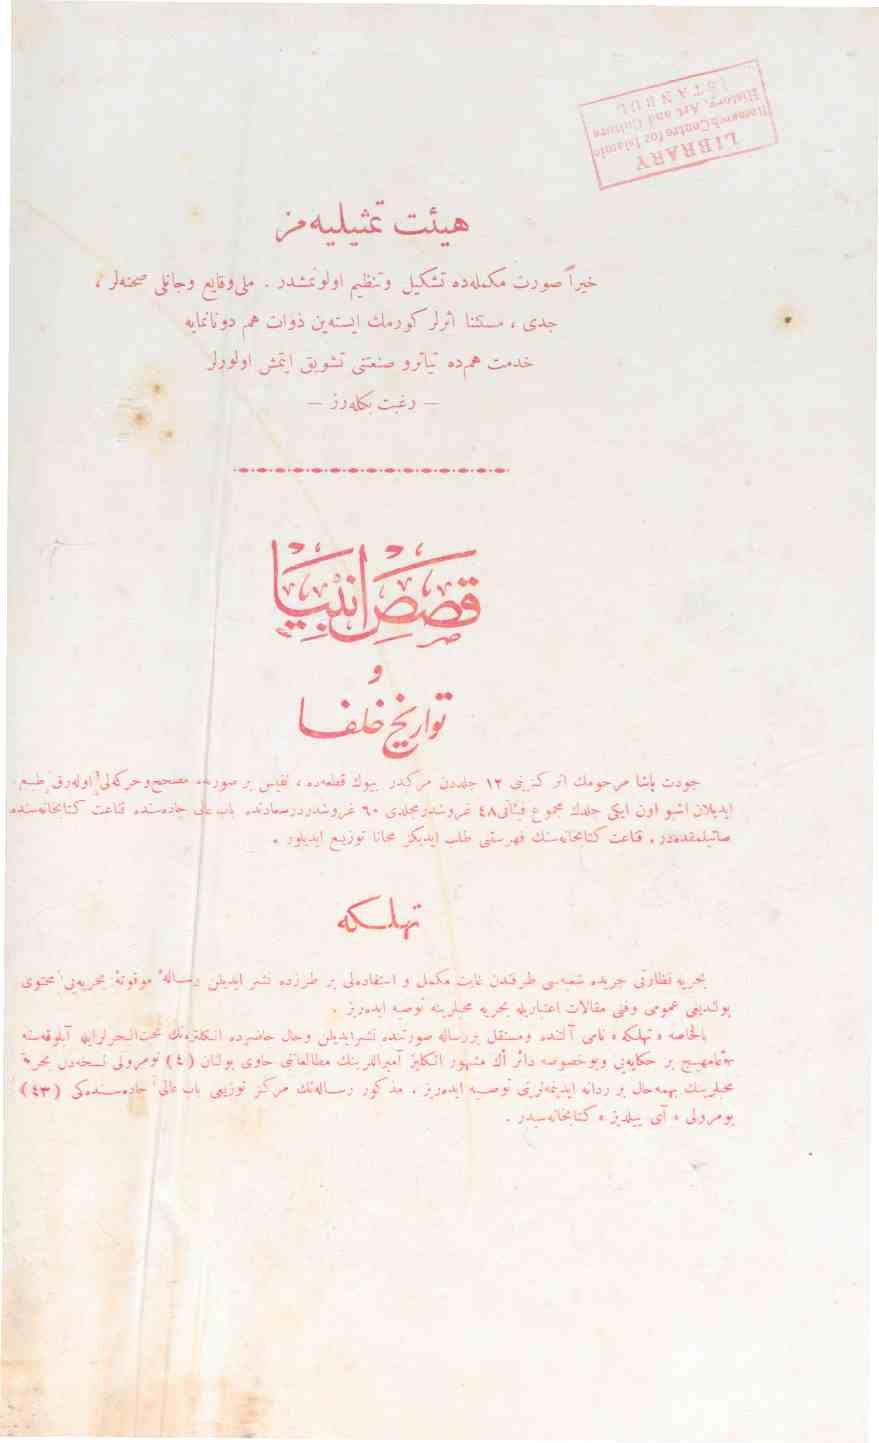 LIBRARY
Research Centre for Islamic
History, Art and Culture
ISTANBUL
هیئت تمثیلیه‌مز
خیراً صورت مکمله‌ده تشکیل وتنظیم اولونمشدر . ملی وقایع وجانلی صحنه‌لر ،
جدی ، مستثنا اثرلر کورمك ایسته‌ین ذوات هم دونانمایه
خدمت هم‌ده تیاترو صنعتی تشویق ایتمش اولورلر
— رغبت بکله‌رز —
قصص انبیا
و
تواریخ خلفا
جودت پاشا مرحومك اثر کزینی ١٢ جلددن مرکدر بیوك قطعه‌ده ، نفیس بر صورتده مصحح وحرکه‌لی اوله‌رق طبع
ایدیلان اشبو اون ایکی جلدك مجموع فیئاتی ٤٨ غروشدر مجلدی ٦٠ غروشدر درسعادتده باب عالی جاده‌سنده قناعت کتابخانه‌سنده
صاتیلمقده‌در . قناعت کتابخانه‌سنك فهرستی طلب ایدیکز مجانا توزیع ایدیلور .
تهلکه
بحریه نظارتی جریده شعبه‌سی طرفندن غایت مکمل و استفاده‌لی بر طرزده نشر ایدیلن رسالهٔ موقوتهٔ بحریه‌یی محتوی
بولندیغی عمومی وفنی مقالات اعتباریله بحریه محبلرینه توصیه ایده‌ریز .
بالخاصه « تهلکه » نامی آلتنده ومستقل بر رساله صورتنده نشر ایدیلن وحال حاضرده انکلتره‌نك تحت‌البحرلرایله آبلوقه‌سنه
مهیج بر حکایه‌یی وبو خصوصه دائر اك مشهور انکلیز آمیراللرینك مطالعاتنی حاوی بولنان (٤) نومرولی نسخه‌دن بحریه
محبلرینك بهمه‌حال بر ردانه ایدینمه‌لرینی توصیه ایده‌ریز . مذکور رساله‌نك مرکز توزیعی باب عالی جاده‌سنده‌کی (٤٣)
نومرولی « آی ییلدیز » کتابخانه‌سیدر .